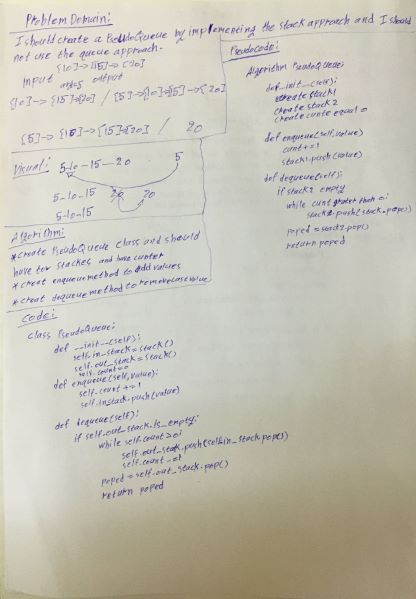 Problem Domain:
I should create a PseudoQueue by implementing the stack approach and I should
not use the queue approach.
[10]->[15]->[20]
Input args output
[10]->[15]->[20] / [5]->[10]->[15]->[20]
[5]->[10]->[15]->[20] / 20
Visual:
5-10-15-20 5
5-10-15 20 20
5-10-15
Algorithm:
*create PseudoQueue class and should
have tow stackes and have cunter
*creat enqueue method to add values
*creat dequeue method to remove value
Pseudocode:
Algorithm PseudoQueue
def_init_(self):
create stack1
create stack2
create cunte equal 0
def enqueue(self,value)
cunt += 1
stack1.push(value)
def dequeue(self):
if stack2 empty
while cunt grater than 0:
stack2.push(stack.pop()
poped = stack2.pop()
return poped
Code:
class PseudoQueue:
def __init__(self):
self.in_stack=stack()
self.out_stack=stack()
self.count=0
def enqueue(self,value):
self.count += 1
self.instack.push(value)
def dequeue(self):
if self.out_stack.is_empty:
while self.count > 0:
self.out_stack.push(self.in_stack.pop())
self.count -=1
poped = self.out_stack.pop()
return poped